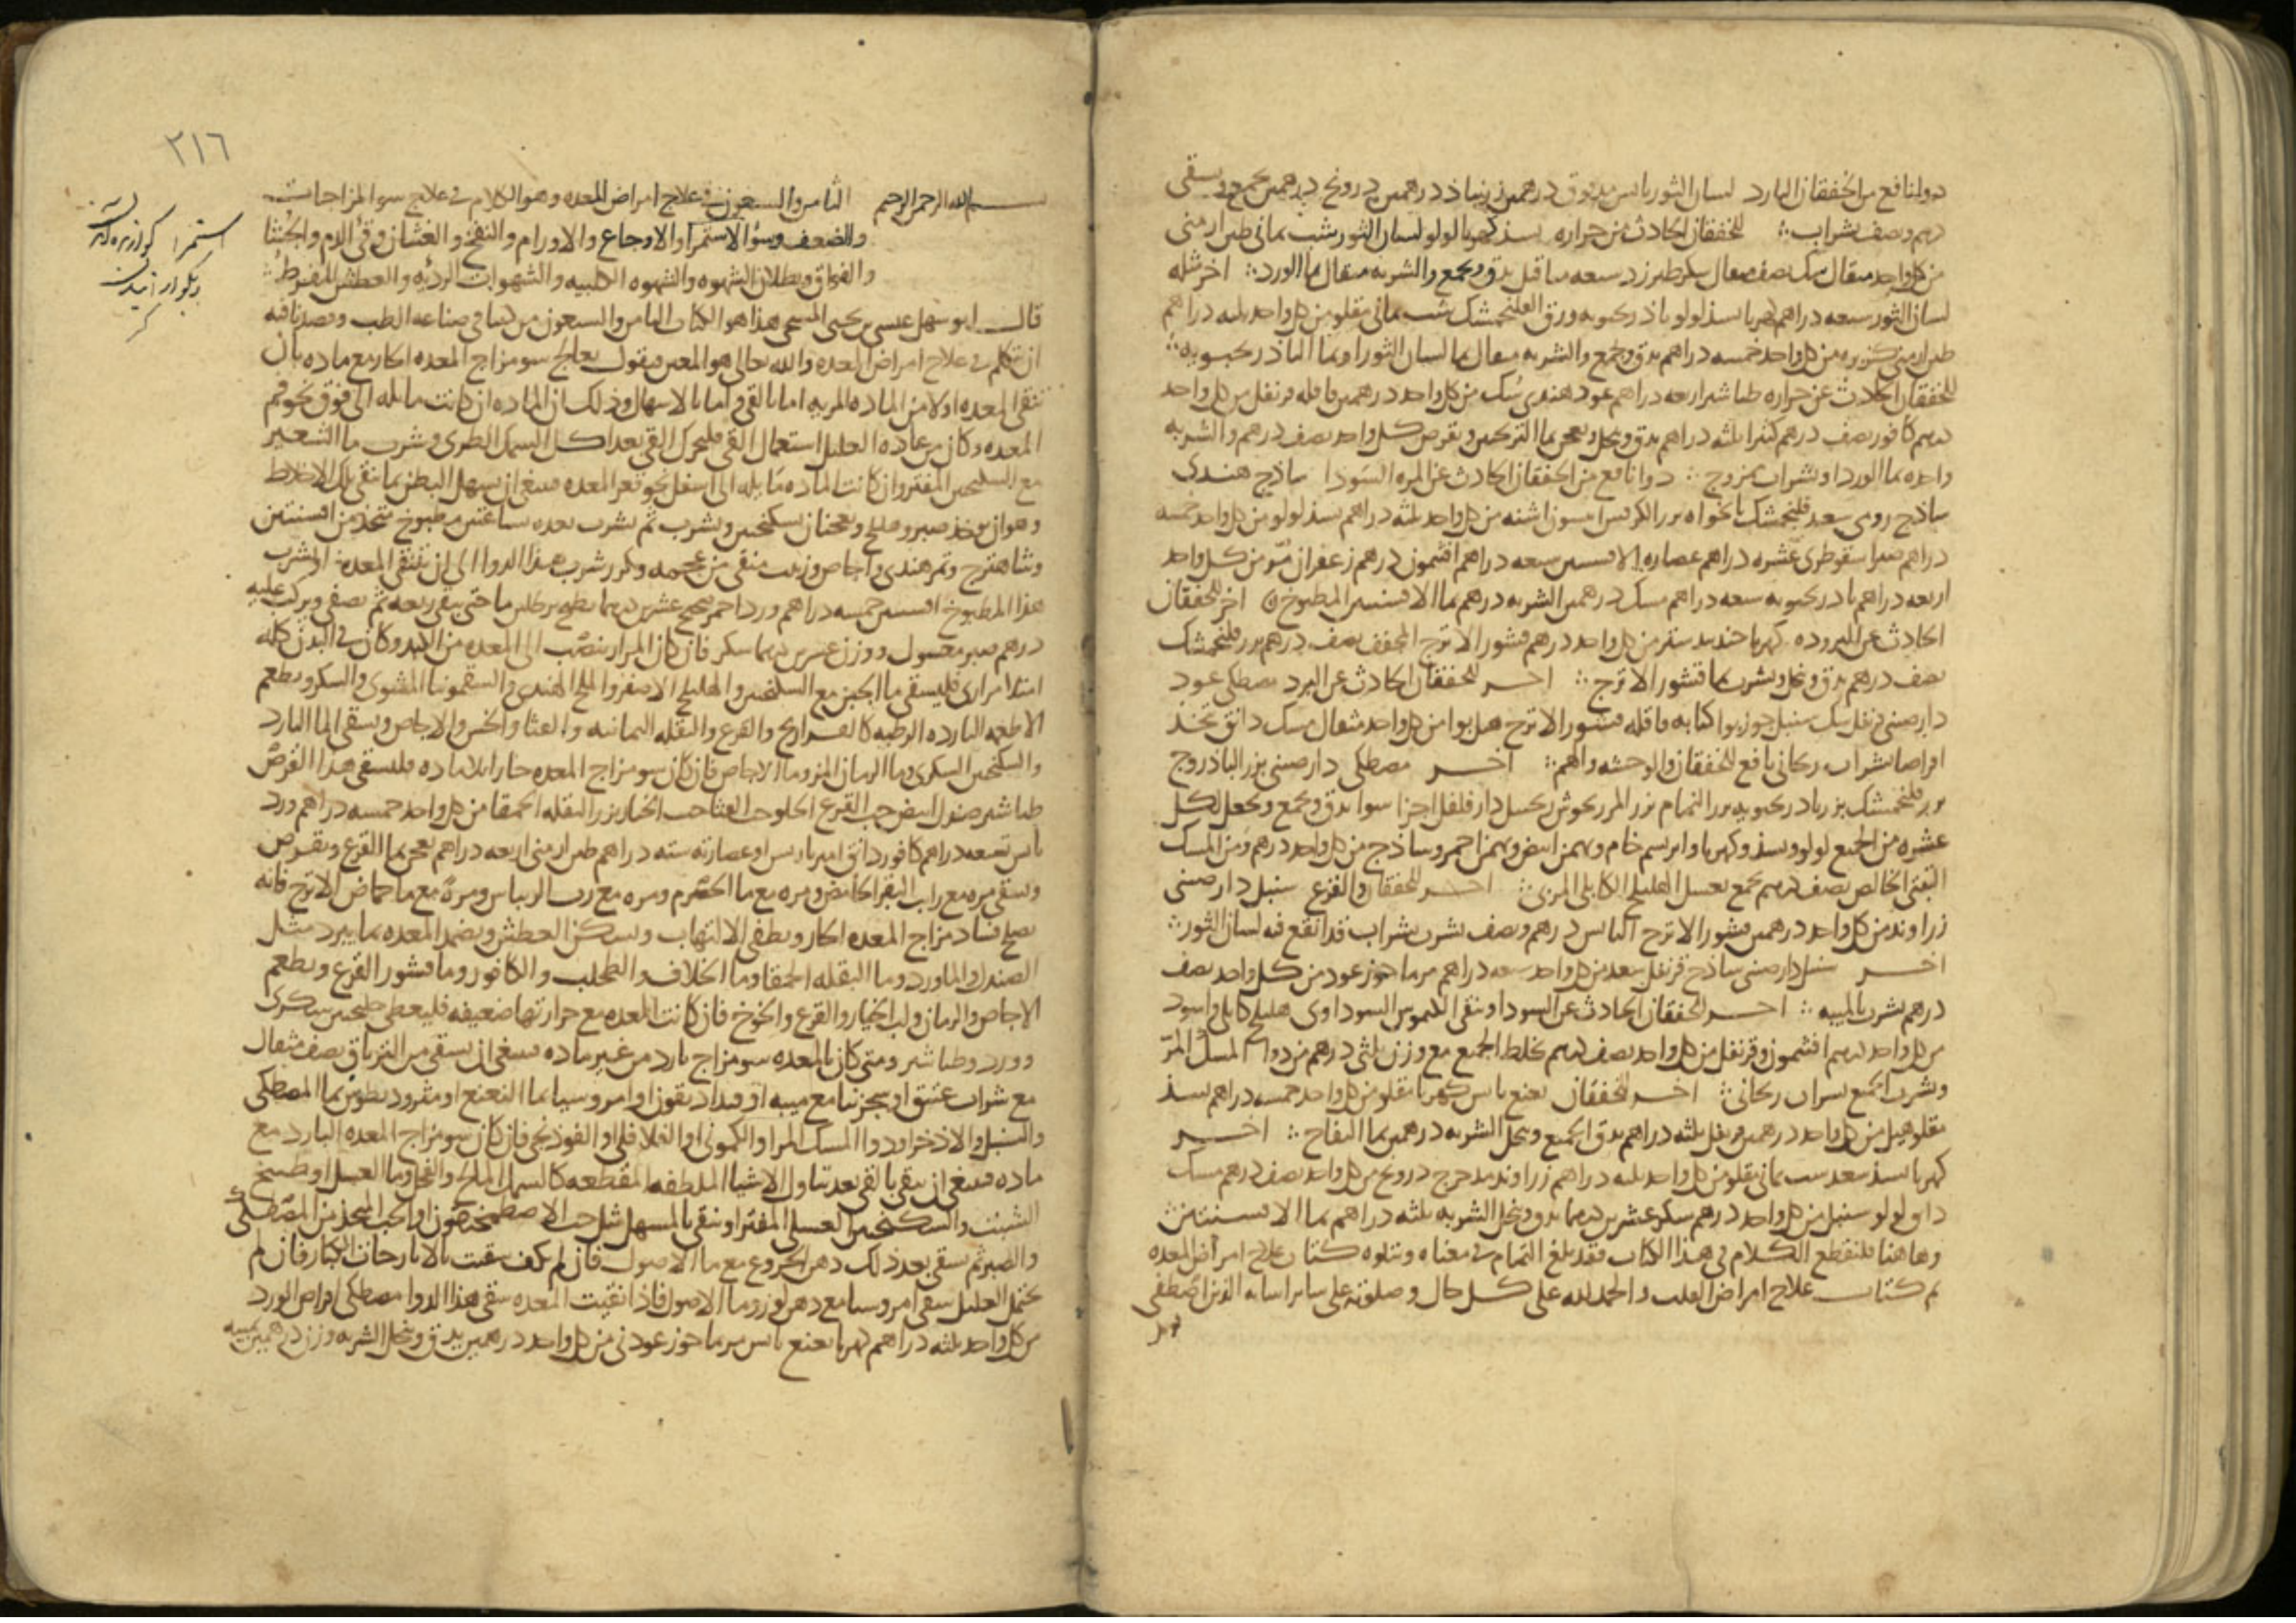 دوا نافع من الخفقان البارد لسان الثور يابس مدقوق درهمين زرنباذ درهمين درونج درهمين يسقى
درهم ونصف بشراب للخفقان الحادث من حراره بسذ كهربا لولو لسان الثور شب يماني طين ارمني
من كل واحد مثقال نصف مثقال سكر طبرزد سبعه مثاقيل يدق ويجمع والشربه مثقال بما الورد اخر مثله
لسان الثور سبعه دراهم كهربا بسذ لولو باذرنجبويه ورق الفلنجمشك شب يماني مقلو من كل واحد ثلثه دراهم
طين ارمني كزبره من كل واحد خمسه دراهم يدق ويجمع والشربه مثقال بما لسان الثور او بما الباذرنجبويه
للخفقان الحادث عن حراره طباشير اربعه دراهم عود هندي سك من كل واحد درهمين قاقله قرنفل من كل واحد
درهم كافور نصف درهم كثيرا ثلثه دراهم يدق وينخل ويعجن بما الترنجبين ويقرص كل واحد نصف درهم والشربه
واحده بما الورد او شراب ممزوج دوا نافع من الخفقان الحادث عن المره السودا ساذج هندي
ساذج رومي سعد فلنجمشك نانخواه بزر الكرفس انيسون اشنه من كل واحد ثلثه دراهم بسذ لولو من كل واحد خمسه
دراهم صبر اسقوطري عشره دراهم عصاره الافسنتين سبعه دراهم افتيمون درهم زعفران مر من كل واحد
اربعه دراهم باذرنجبويه سبعه دراهم مسك درهمين الشربه درهم بما الافسنتين المطبوخ اخر للخفقان
الحادث عن البروده كهربا جندبدستر من كل واحد درهم قشور الاترج المجفف نصف درهم بزر فلنجمشك
نصف درهم يدق وينخل ويشرب بما قشور الاترج اخر للخفقان الحادث عن البرد مصطكى عود
دارصيني قرنفل سك سنبل جوزبوا كبابه قاقله قشور الاترج هل بوا من كل واحد مثقال مسك دانق تتخذ
اقراصا بشراب ريحاني نافع للخفقان والوحشه والهم اخر مصطكى دارصيني بزر الباذروج
بزر فلنجمشك بزر باذرنجبويه بزر النمام بزر المرزنجوش دارفلفل اجزا سوا يدق ويجمع ويجعل لكل
عشره من الجميع لولو وبسذ وكهربا وابريسم خام وبهمن ابيض وبهمن احمر وساذج من كل واحد درهم ومن المسك
التبتي الخالص نصف درهم يجمع بعسل الهليلج الكابلي المربى اخر للخفقان والفزع سنبل دارصيني
زراوند من كل واحد درهمين قشور الاترج اليابس درهم ونصف يشرب بشراب قد انقع فيه لسان الثور
اخر سنبل دارصيني ساذج قرنفل سعد من كل واحد سبعه دراهم مرماحوز عود من كل واحد نصف
درهم يشرب بالميبه اخر للخفقان الحادث عن السودا وينقي الكيموس السوداوي هليلج كابلي واسود
من كل واحد درهم افتيمون وقرنفل من كل واحد نصف درهم يخلط الجميع مع وزن ثلثي درهم من دوا المسك المر
ويشرب الجميع بشراب ريحاني اخر للخفقان نعنع يابس كهربا مقلو من كل واحد خمسه دراهم بسذ
مقلو هيل من كل واحد درهمين قرنفل ثلثه دراهم يدق الجميع وينخل الشربه درهمين بما التفاح اخر
كهربا بسذ سعد شب يماني مقلو من كل واحد ثلثه دراهم زراوند مدحرج درونج من كل واحد نصف درهم مسك
دانق لولو سنبل من كل واحد درهم سكر عشرين درهما يدق وينخل الشربه ثلثه دراهم بما الافسنتين
وهاهنا فلنقطع الكلام في هذا الكتاب فقد بلغ التمام في معناه ونتلوه كتاب علاج امراض المعده
تم كتاب علاج امراض القلب والحمد لله على كل حال وصلوته على ساير انبيايه الذين اصطفى
٢١٦
بسم الله الرحمن الرحيم الثامن والسبعون في علاج امراض المعده وهو الكلام في علاج سو المزاجات
والضعف وسوء الاستمرا والاوجاع والاورام والنفخ والغثيان وقيء الدم والجشا
والفواق وبطلان الشهوه والشهوه الكلبيه والشهوات الرديه والعطش المفرط
قال ابو سهل عيسى بن يحيى المسيحي هذا هو الكتاب الثامن والسبعون من كتبنا في صناعه الطب وقصدنا فيه
ان نتكلم في علاج امراض المعده والله تعالى هو المعين فنقول يعالج سو مزاج المعده الحار مع ماده بان
تنقى المعده اولا من الماده المريه اما بالقي واما بالاسهال وذلك ان الماده ان كانت مايله الى فوق نحو فم
المعده وكان من عاده العليل استعمال القي فليحرك القي بعد اكل السمك الطري وشرب ما الشعير
مع السكنجبين المفتر وان كانت الماده مايله الى اسفل نحو قعر المعده فينبغي ان يسهل البطن بما ينقي تلك الاخلاط
وهو ان يوخذ صبر وهليلج ويعجنان بسكنجبين ويشرب ثم يشرب بعده بساعتين مطبوخ متخذ من افسنتين
وشاهترج وتمر هندي واجاص وزبيب منقى من عجمه ويكرر شرب هذا الدوا الى ان تنقى المعده او يشرب
هذا المطبوخ افسنتين خمسه دراهم ورد احمر صحيح عشرين درهما يطبخ برطلين ما حتى يبقى ربعه ثم يصفى ويركب عليه
درهم صبر مغسول ووزن عشرين درهما سكر فان كان المرار ينصب الى المعده من الكبد وكان في البدن كله
امتلا مراري فليسقى ما الجبن مع السكنجبين والهليلج الاصفر والملح الهندي والسقمونيا المشوي والسكر ويطعم
الاطعمه البارده الرطبه كالفراريج والقرع والبقله اليمانيه والقثا والخس والاجاص ويسقى الما البارد
والسكنجبين السكري وما الرمان المز وما الاجاص فان كان سو مزاج المعده حارا بلا ماده فليسقى هذا القرص
طباشير صندل ابيض حب القرع الحلو حب القثا حب الخيار بزر البقله الحمقا من كل واحد خمسه دراهم ورد
يابس تسعه دراهم كافور دانق امبرباريس او عصارته سته دراهم طين ارمني اربعه دراهم يعجن بما القرع ويقرص
ويسقى مره مع رايب البقر الحامض ومره مع ما الحصرم ومره مع رب الريباس ومره مع ما حماض الاترج فانه
يصلح فساد مزاج المعده الحار ويطفي الالتهاب ويسكن العطش ويضمد المعده بما يبرد مثل
الصندل والماورد وما البقله الحمقا وما الخلاف والطحلب والكافور وما قشور القرع ويطعم
الاجاص والرمان ولب الخيار والقرع والخوخ فان كانت المعده مع حرارتها ضعيفه فليعطى جلنجبين سكري
وورد وطباشير ومتى كان بالمعده سو مزاج بارد من غير ماده فينبغي ان يسقى من الترياق نصف مثقال
مع شراب عتيق او سجزنيا مع ميبه او قنداديقون او امروسيا بما النعنع او مثروديطوس بما المصطكى
والسنبل والاذخر او دوا المسك المر او الكموني او الفلافلي او الفوذنجي فان كان سو مزاج المعده البارد مع
ماده فينبغي ان ينقى بالقي بعد تناول الاشيا الملطفه المقطعه كالسمك المالح والفجل وما العسل او طبيخ
الشبث والسكنجبين العسلي المفتر او ينقى بالمسهل مثل حب الاصطمخيقون او الحب المتخذ من المصطكى
والصبر ثم يسقى بعد ذلك دهن الخروع مع ما الاصول فان لم يكف سقيت بالايارجات الكبار فان لم
يحتمل العليل سقي امروسيا مع دهن لوز وما الاصول فاذا نقيت المعده سقي هذا الدوا مصطكى اقراص الورد
من كل واحد ثلثه دراهم كهربا نعنع يابس مرماحوز عود ني من كل واحد درهمين يدق وينخل الشربه وزن درهمين بميبه